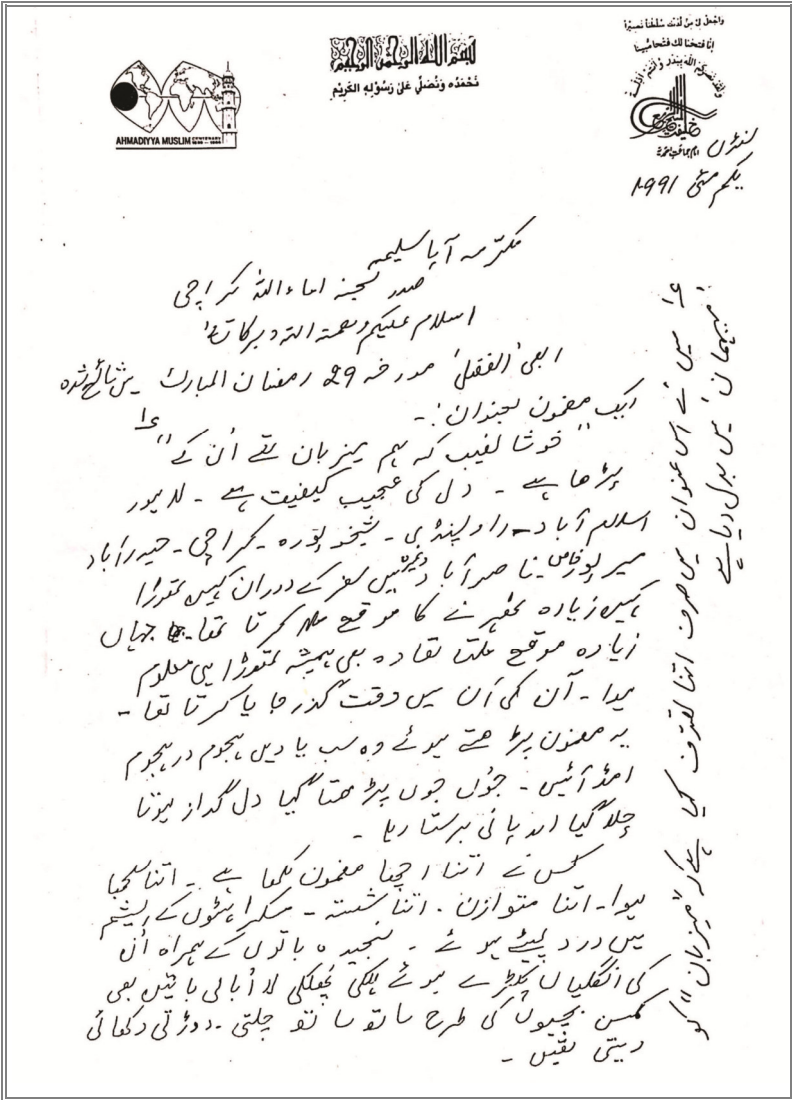 بِسْمِ اللهِ الرَّحْمٰنِ الرَّحِيْمِ
نَحْمَدُهٗ وَنُصَلِّیْ عَلٰی رَسُوْلِهِ الْكَرِیْمِ
وَاجْعَلْ لِّیْ مِنْ لَّدُنْكَ سُلْطٰنًا نَّصِیْرًا
اِنَّا فَتَحْنَا لَكَ فَتْحًا مُّبِیْنًا
وَلَقَدْ نَصَرَكُمُ اللهُ بِبَدْرٍ وَّاَنْتُمْ اَذِلَّةٌ
امام جماعت احمدیہ
AHMADIYYA MUSLIM CENTENARY
لنڈن
یکم مئی 1991
مکرّمہ آپا سلیمہ
صدر لجنہ اماء اللہ کراچی
السلام علیکم ورحمۃ اللہ وبرکاتہٗ
ابھی 'الفضل' مورخہ 29 رمضان المبارک میں شائع شدہ
ایک مضمون بعنوان :-
"خوشا نصیب کہ ہم میزبان تھے اُن کے" ؏۱
پڑھا ہے ۔ دل کی عجیب کیفیت ہے ۔ لاہور
اسلام آباد ۔ راولپنڈی ۔ شیخوپورہ ۔ کراچی ۔ حیدرآباد
میرپورخاص ناصر آباد وغیرہ میں سفر کے دوران کہیں تھوڑا
کہیں زیادہ ٹھہرنے کا موقع ملا کرتا تھا ۔ جہاں
زیادہ موقع ملتا تھا وہ بھی ہمیشہ تھوڑا ہی معلوم
ہوا ۔ آن کی آن میں وقت گذر جایا کرتا تھا ۔
یہ مضمون پڑھتے ہوئے وہ سب یادیں ہجوم در ہجوم
امڈ آئیں ۔ جُوں جوں پڑھتا گیا دل گداز ہوتا
چلا گیا اور پانی برستا رہا ۔
کس نے اتنا اچھا مضمون لکھا ہے ۔ اتنا سلجھا
ہوا ۔ اتنا متوازن ۔ اتنا شستہ ۔ مسکراہٹوں کے ریشم
میں درد لپیٹے ہوئے ۔ سنجیدہ باتوں کے ہمراہ اُن
کی انگلیاں پکڑے ہوئے ہلکی پھلکی لا اُبالی باتیں بھی
کمسن بچیوں کی طرح ساتھ ساتھ چلتی ۔ دوڑتی دکھائی
دیتی تھیں ۔
؏۱ میں نے اس عنوان میں صرف اتنا تصرف کیا ہے کہ "میزبان" کو
'مہمان' میں بدل دیا ہے